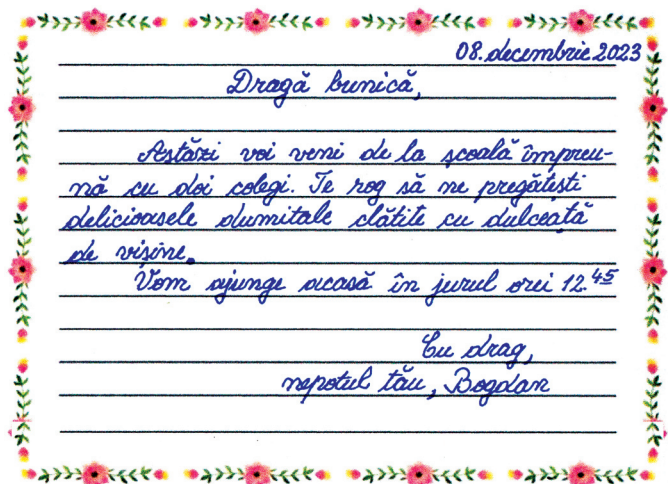 08. decembrie 2023
Dragă bunică,
Astăzi voi veni de la școală împreu-
nă cu doi colegi. Te rog să ne pregătești
delicioasele dumitale clătite cu dulceață
de vișine.
Vom ajunge acasă în jurul orei 12.45
Cu drag,
nepotul tău, Bogdan